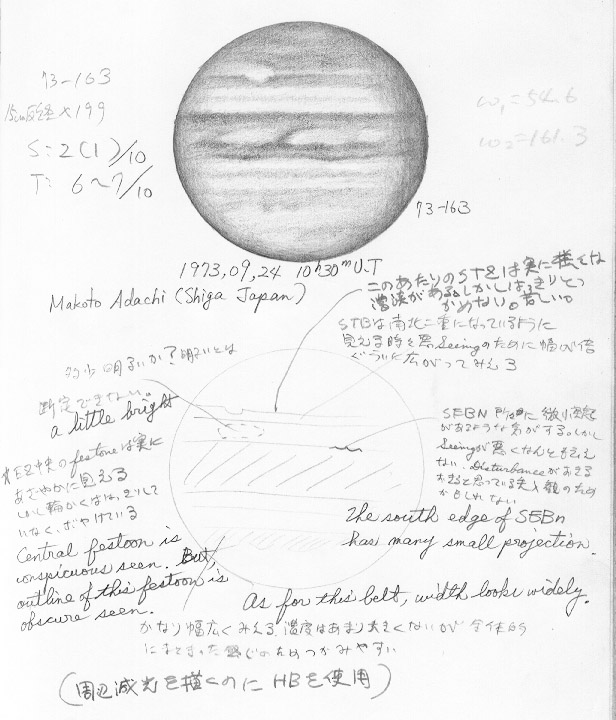 73-163
15cm反経×199
S: 2(1)/10
T: 6〜7/10
ω1=54.6
ω2=161.3
73-163
1973,09,24 10h30m U.T
Makoto Adachi (Shiga Japan)
このあたりのSTZは実に複雑な
濃淡がある。しかしはっきりとつ
かめない。苦しい。
STBは南北二重になっているように
見える時を 悪Seeingのために幅が倍
ぐらいに広がってみえる
多少明るいか? 明るいとは
断定できない。
a little bright
EZ中央のfestoneは実に
あざやかに見える
しかし輪かくははっきりして
いなく、ぼやけている
Central festoon is
conspicuous seen. But,
outline of this festoon is
obscure seen.
SEBN
があるような気がする。しかし
Seeingが悪くなんともいえ
ない。Disturbanceがある
かもしれない
The south edge of SEBn
has many small projection.
As for this belt, width looks widely.
かなり幅広くみえる。濃度はあまり大きくないが 全体的
にまとまった感じのためつかみやすい
(周辺減光を描くのに HBを使用)